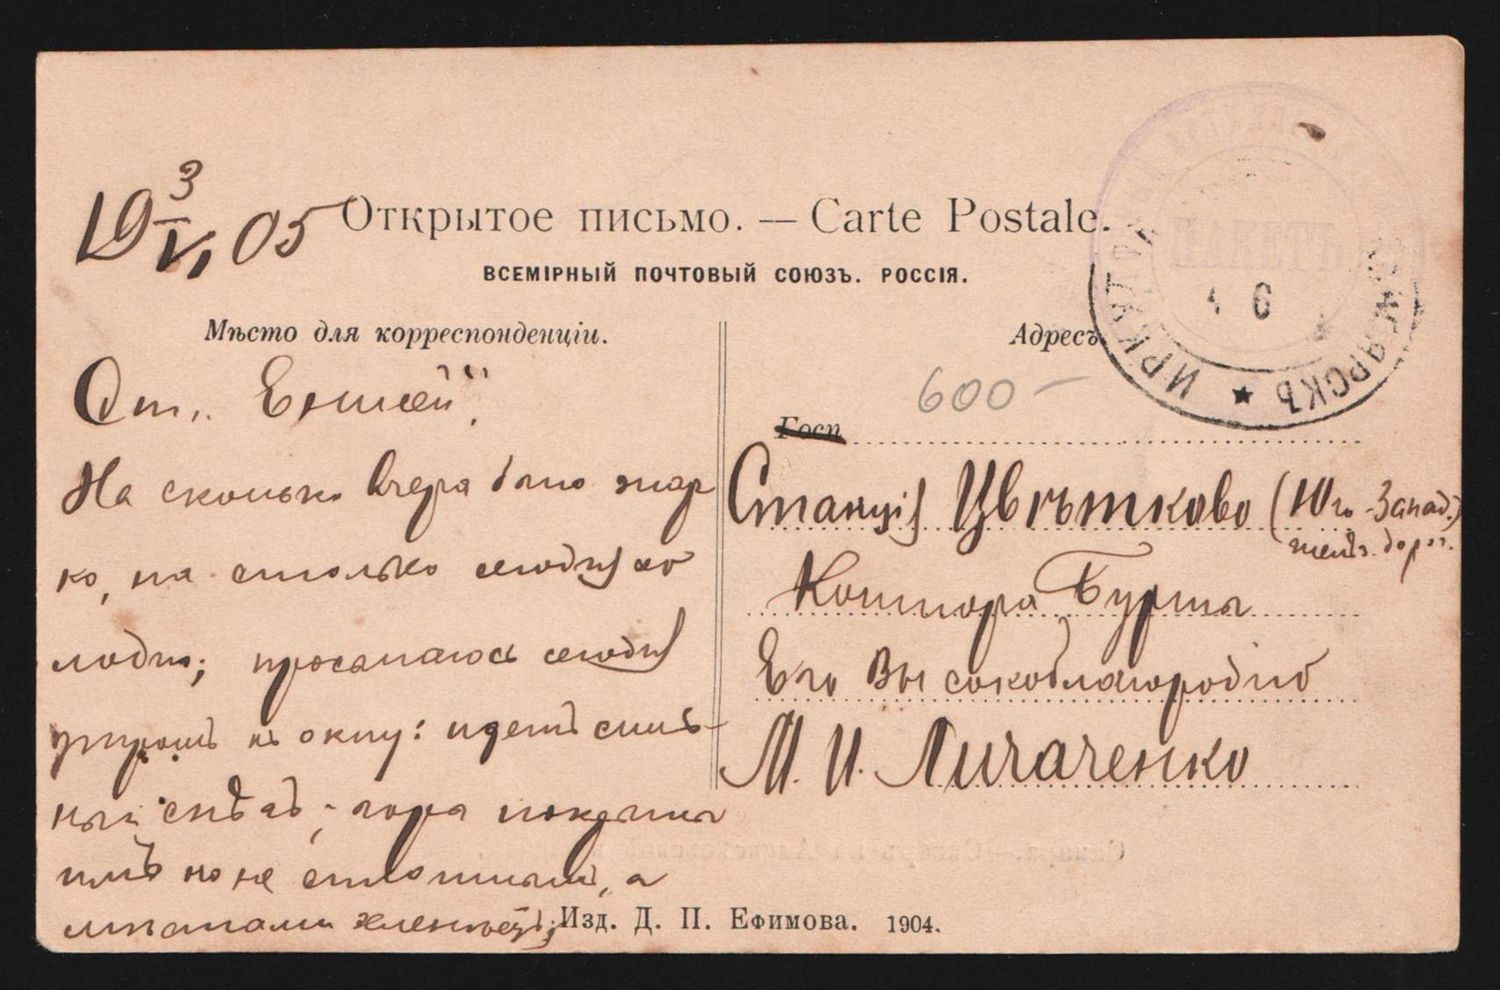 19 3/VI 05
Открытое письмо. — Carte Postale.
ВСЕМІРНЫЙ ПОЧТОВЫЙ СОЮЗЪ. РОССІЯ.
Мѣсто для корреспонденціи.
Адресъ
ИРКУТ КРАСНОЯРСКЪ ★
6
600 —
Госп
Ст. „Енисей“.
На сколько вчера было жар
ко, на столько сегодня хо
лодно; просыпаюсь сегодня
утромъ къ окну: идетъ силь-
ный снѣгъ, гора покрыты
имъ но не сплошнымъ, а
мѣстами зеленѣетъ;
Станція Цвѣтково (Юго-Запад.
желѣз. дорог.)
Контора Бурты
Его Высокоблагородію
М. И. Личаченко
Изд. Д. П. Ефимова. 1904.